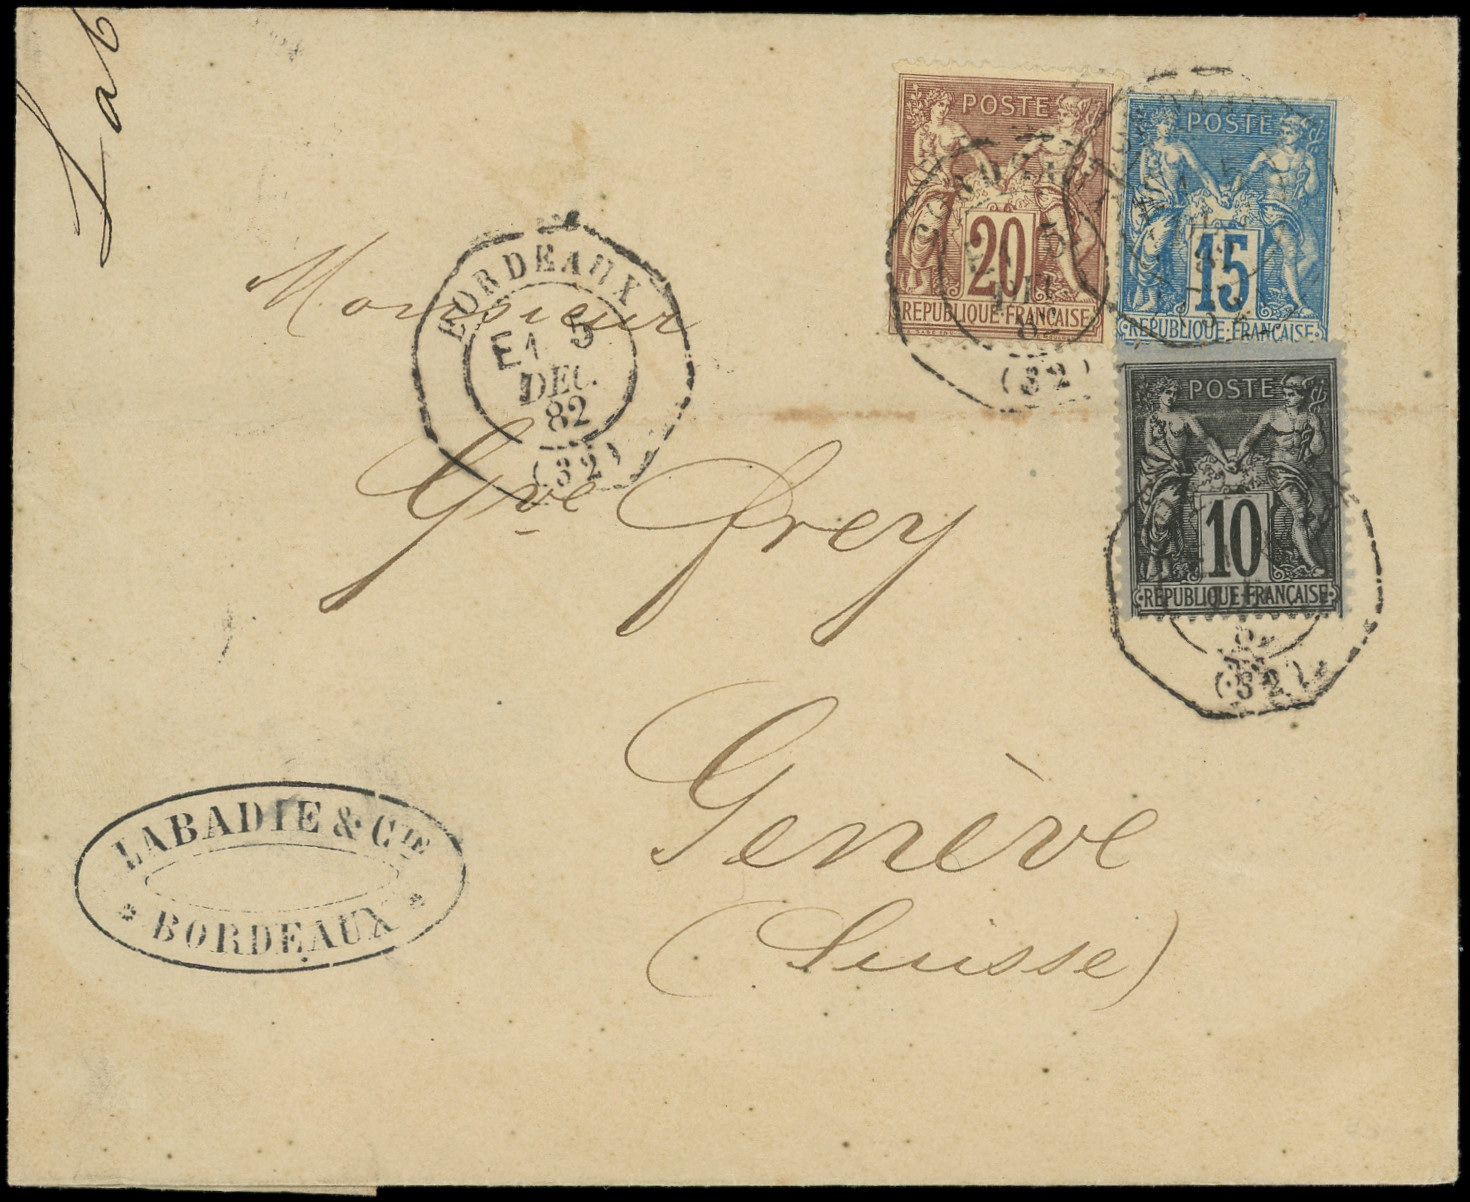 Lab
POSTE
20
REPUBLIQUE·FRANÇAISE
POSTE
15
REPUBLIQUE·FRANÇAISE
POSTE
10
REPUBLIQUE·FRANÇAISE
BORDEAUX
E1 5
DEC.
82
(32)
(32)
(32)
Monsieur
Gve Frey
Genève
(Suisse)
LABADIE & CIE
* BORDEAUX *